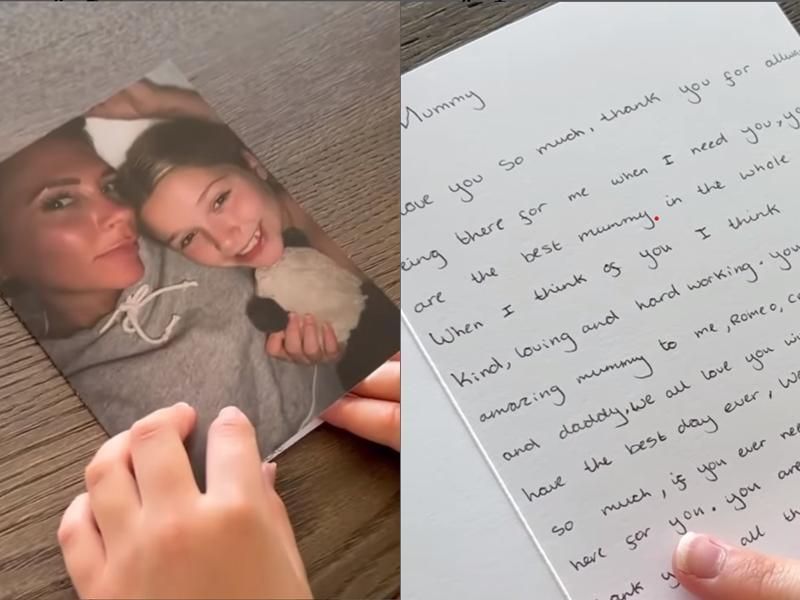 Mummy
love you so much, thank you for
being there for me when I need you,
are the best mummy. in the whole
When I think of you I think
Kind, loving and hard working. you
amazing mummy to me, Romeo,
and daddy, We all love you
have the best day ever, We
so much, if you ever need
here for you. you are
all